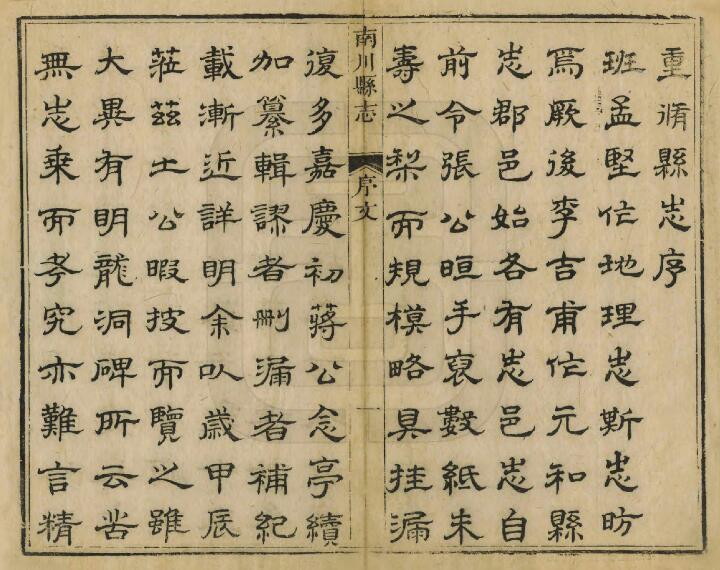 重脩縣志序
班孟堅作地理志斯志昉
焉厥後李吉甫作元和縣
志郡邑始各有志邑志自
前令張公晅手裒數紙未
壽之梨而規模略具挂漏
南川縣志 序文 一
復多嘉慶初蔣公念亭續
加纂輯謬者刪漏者補紀
載漸近詳明余以歲甲辰
莅茲土公暇披而覽之雖
大異有明龍洞碑所云苦
無志乘而考究亦難言精